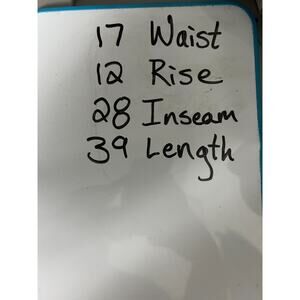 17 Waist
12 Rise
28 Inseam
39 Length